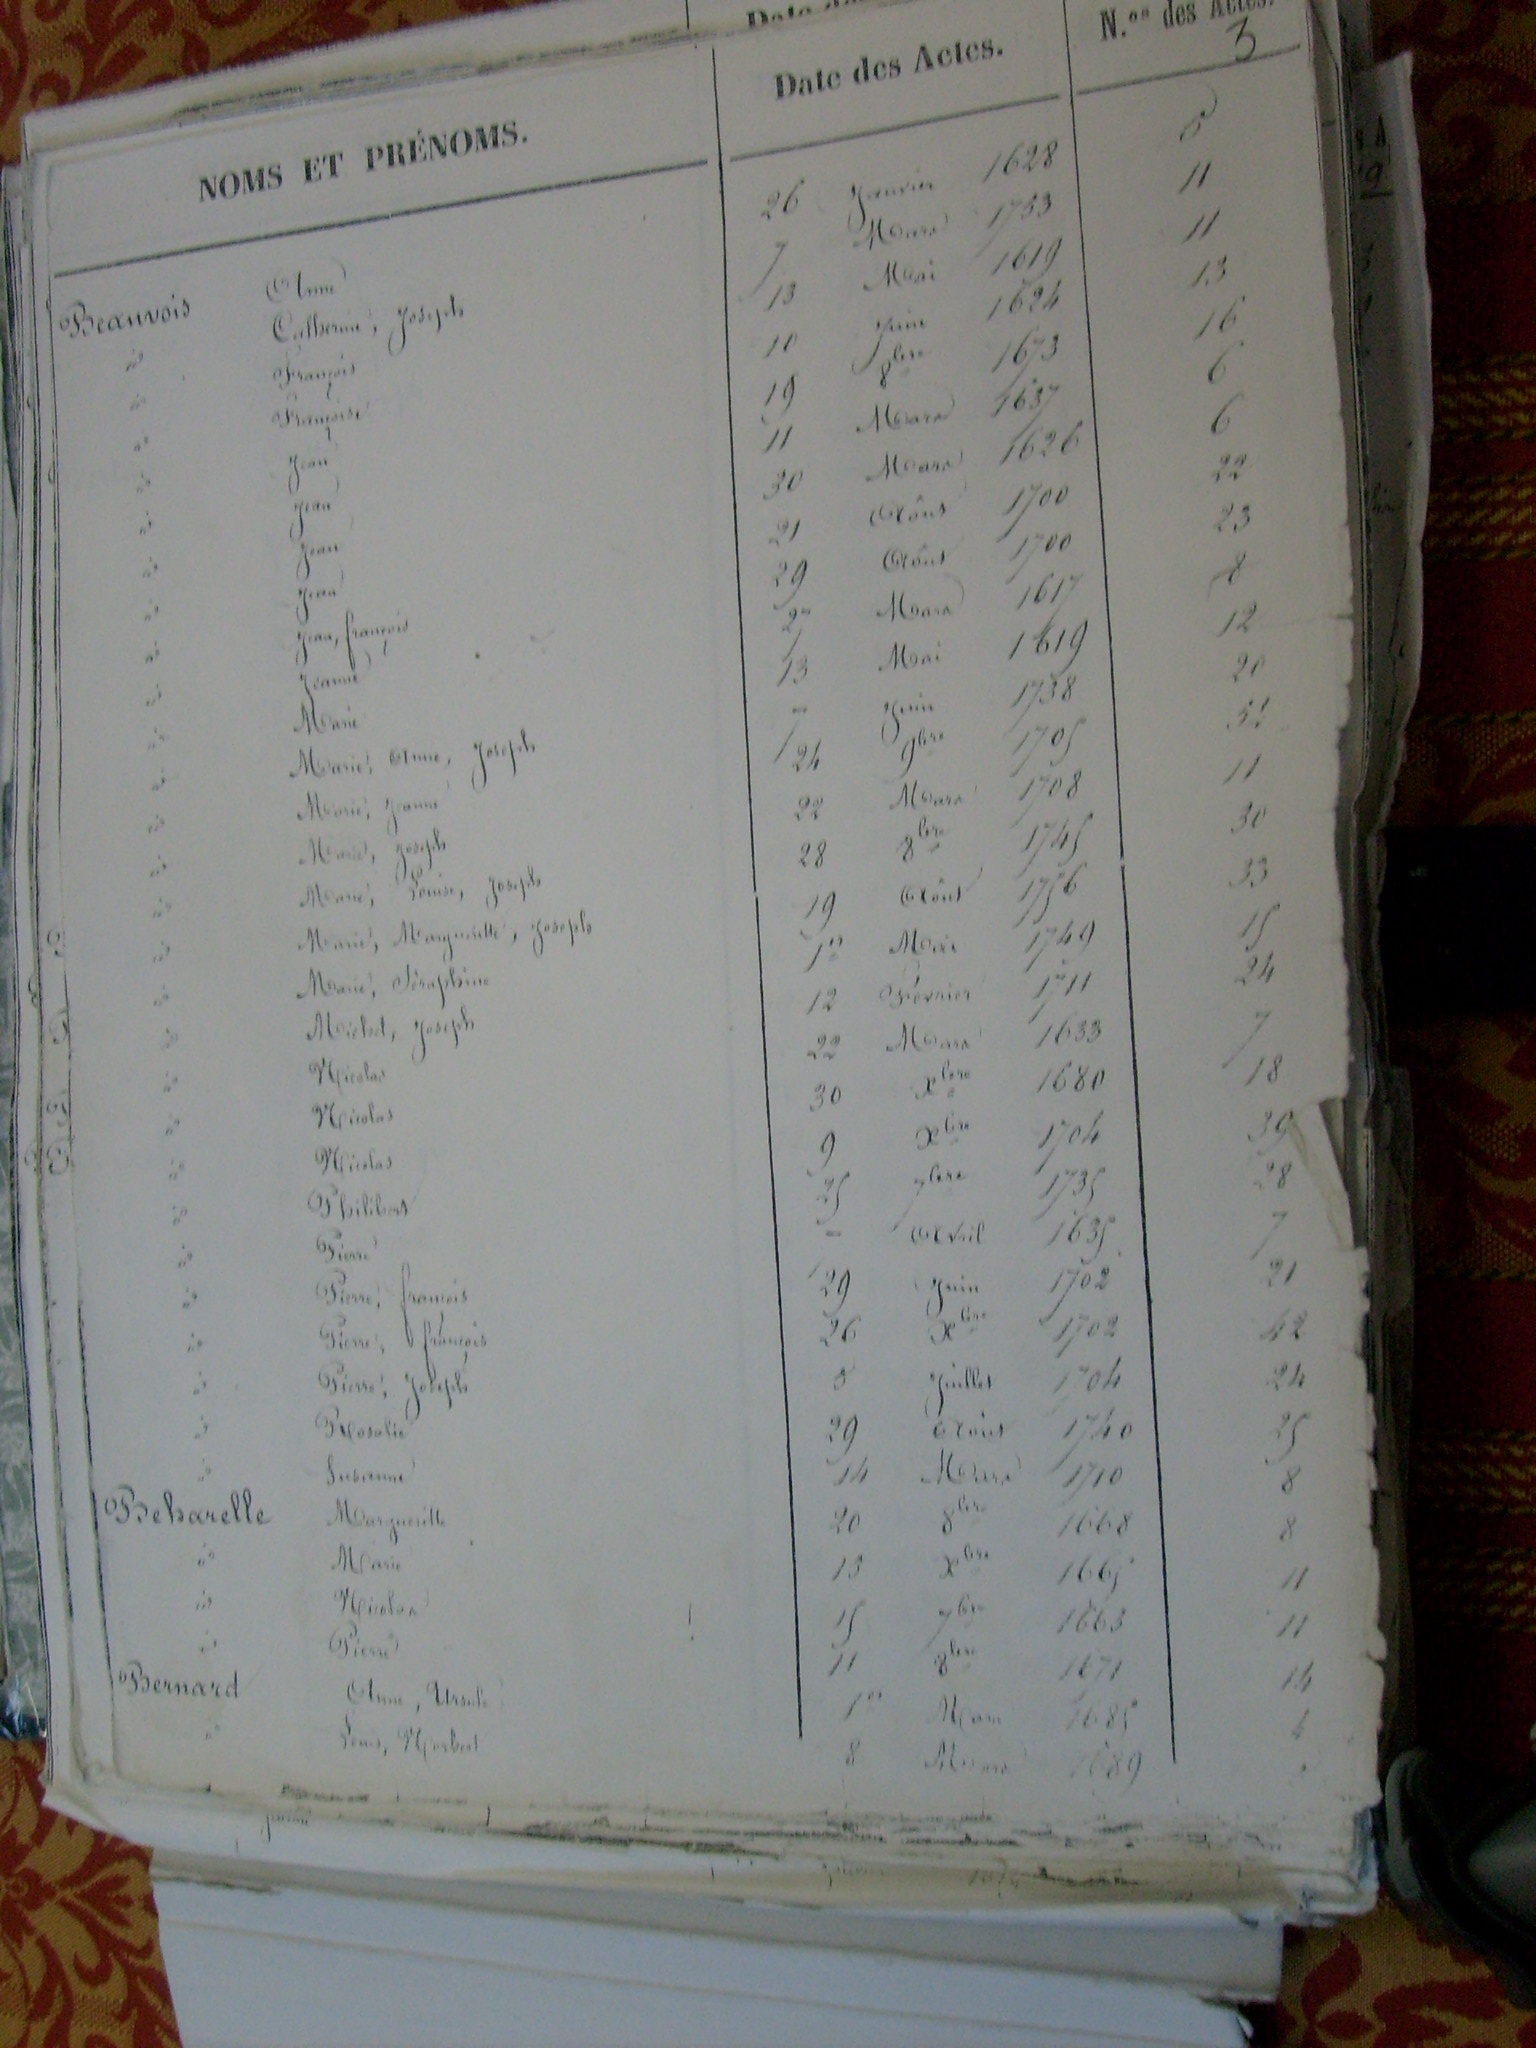 N.os des Actes.
3
NOMS ET PRÉNOMS. Date des Actes.
Beauvois Anne 26 Janvier 1628 5
id Catherine, Joseph 7 Mars 1753 11
id François 13 Mai 1619 11
id Françoise 10 Juin 1624 13
id Jean 19 8bre 1673 16
id Jean 11 Mars 1637 6
id Jean 30 Mars 1626 6
id Jean 21 Août 1700 22
id Jean, françois 29 Août 1700 23
id Jeanne 27 Mars 1617 8
id Marie 13 Mai 1619 12
id Marie, Anne, Joseph 7 Juin 1738 20
id Marie, Jeanne 24 9bre 1705 51
id Marie, Joseph 22 Mars 1708 11
id Marie, Louise, Joseph 28 8bre 1745 30
id Marie, Marguerite, Joseph 19 Août 1756 33
id Marie, Séraphine 1er Mai 1749 15
id Michel, Joseph 12 Février 1711 24
id Nicolas 22 Mars 1633 7
id Nicolas 30 Xbre 1680 18
id Nicolas 9 Xbre 1704 39
id Philibert 25 7bre 1735 28
id Pierre 7 Avril 1635 7
id Pierre, françois 29 Juin 1702 21
id Pierre, françois 26 Xbre 1702 42
id Pierre, Joseph 5 Juillet 1704 24
id Rosalie 29 Août 1740 25
id Susanne 14 Mars 1710 8
Beharelle Marguerite 20 8bre 1668 8
id Marie 13 Xbre 1665 11
id Nicolas 15 7bre 1663 11
id Pierre 11 8bre 1671 14
Bernard Anne, Ursule 1er Mars 1685 4
id Louis, Norbert 8 Mars 1689